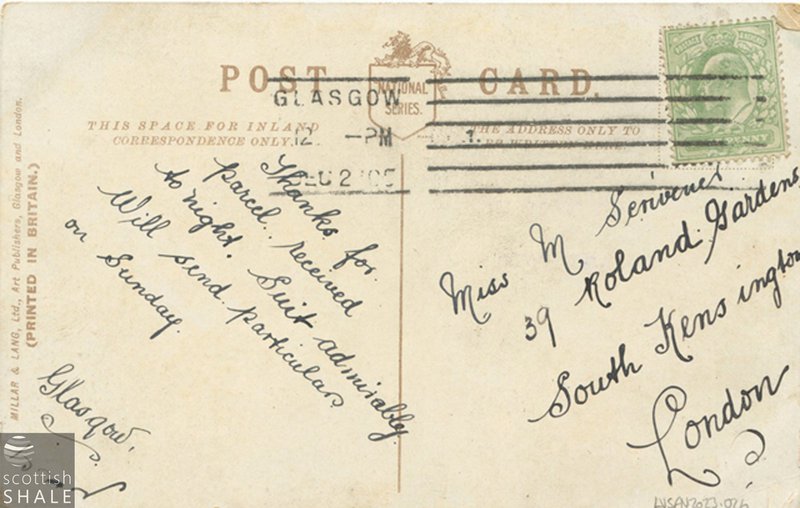 POST CARD.
NATIONAL
SERIES.
THIS SPACE FOR INLAND
CORRESPONDENCE ONLY.
THE ADDRESS ONLY TO
BE WRITTEN HERE.
GLASGOW
12 -PM
DEC 2 05
Thanks for
parcel. received
to night. Suit admirably
Will send particulars
on Sunday.
Glasgow.
Miss M Scrivener
39 Roland Gardens
South Kensington
London
MILLAR & LANG, Ltd., Art Publishers, Glasgow and London.
(PRINTED IN BRITAIN.)
POSTAGE
scottish
SHALE
LVSAV2023.026